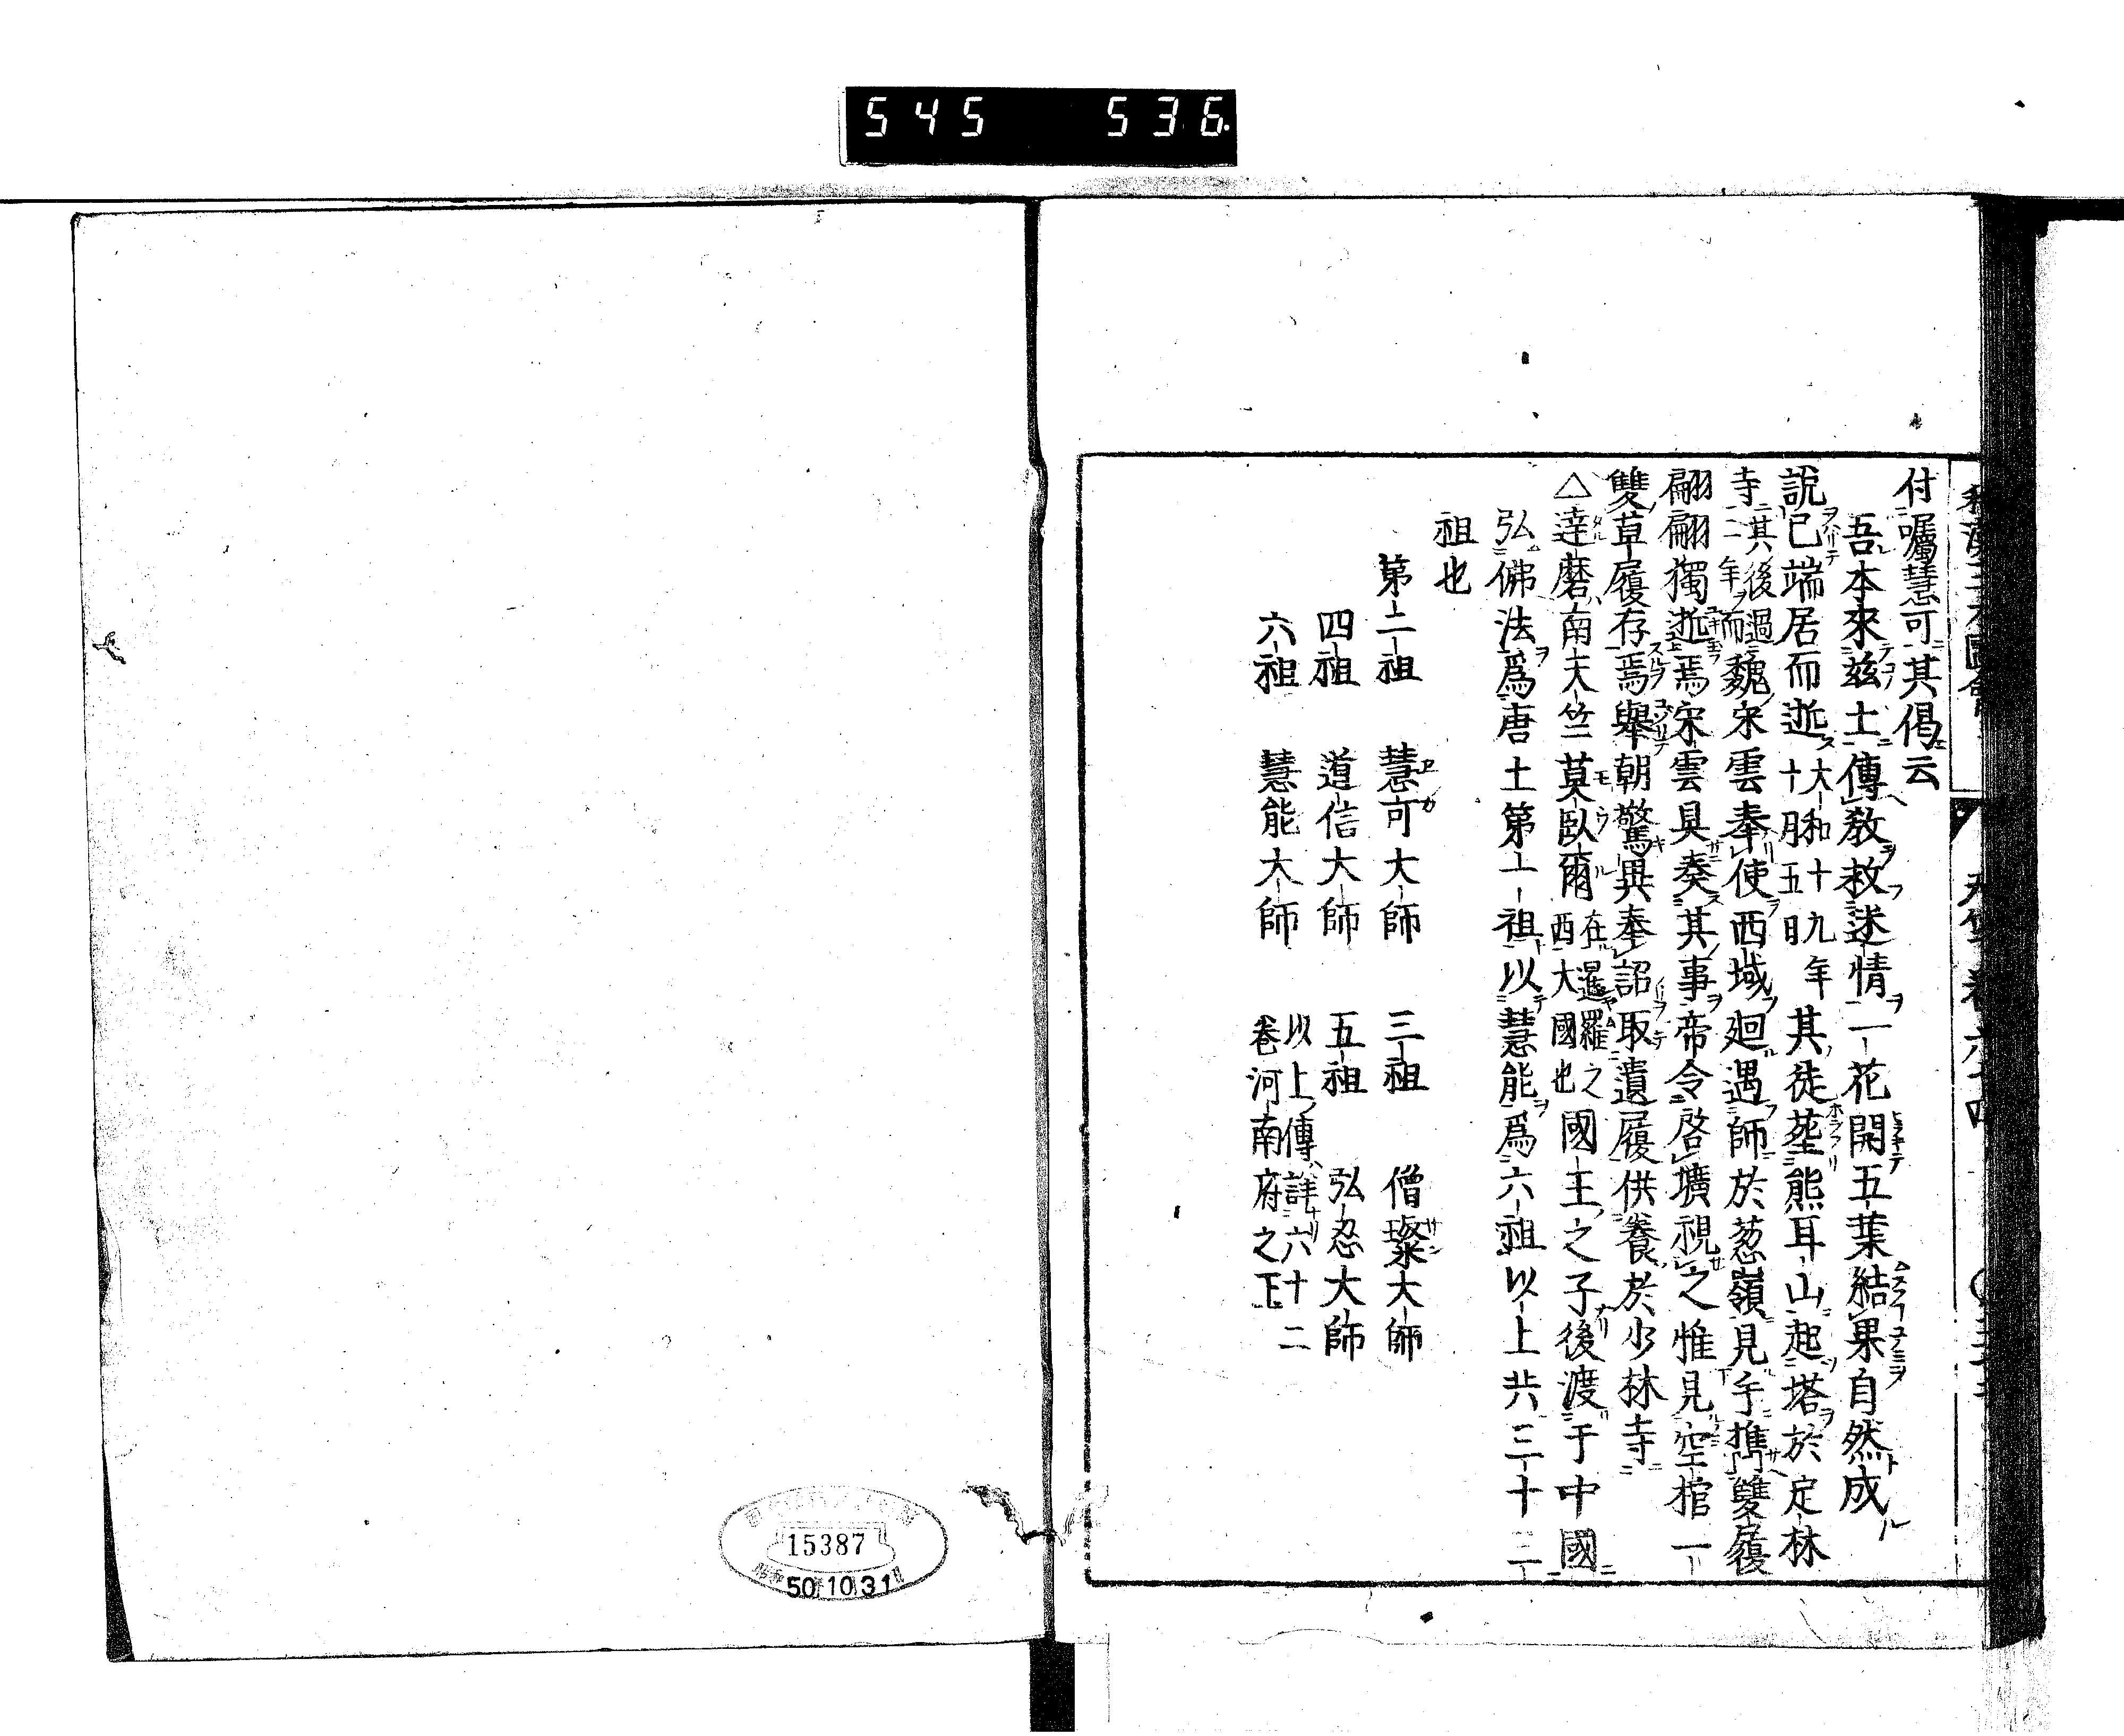 545 536
付囑慧可其偈云
吾本來茲土傳敎救迷情一花開五葉結果自然成
說已端居而逝大和十九年十月五日其徒葬熊耳山起塔於定林
寺其後過二年而魏宋雲奉使西域廻遇師於葱嶺見手携雙履
翩翩獨逝焉宋雲具奏其事帝令啓壙視之惟見空棺一
雙草履存焉舉朝驚異奉詔取遺履供養於少林寺
△達磨南天竺莫臥爾在暹羅之西大國也國王之子後渡于中國
弘佛法爲唐土第一祖以慧能爲六祖以上共三十三
祖也
第二祖 慧可大師 三祖 僧璨大師
四祖 道信大師 五祖 弘忍大師
六祖 慧能大師 以上傳詳六十二卷河南府之下
15387
50.10.31